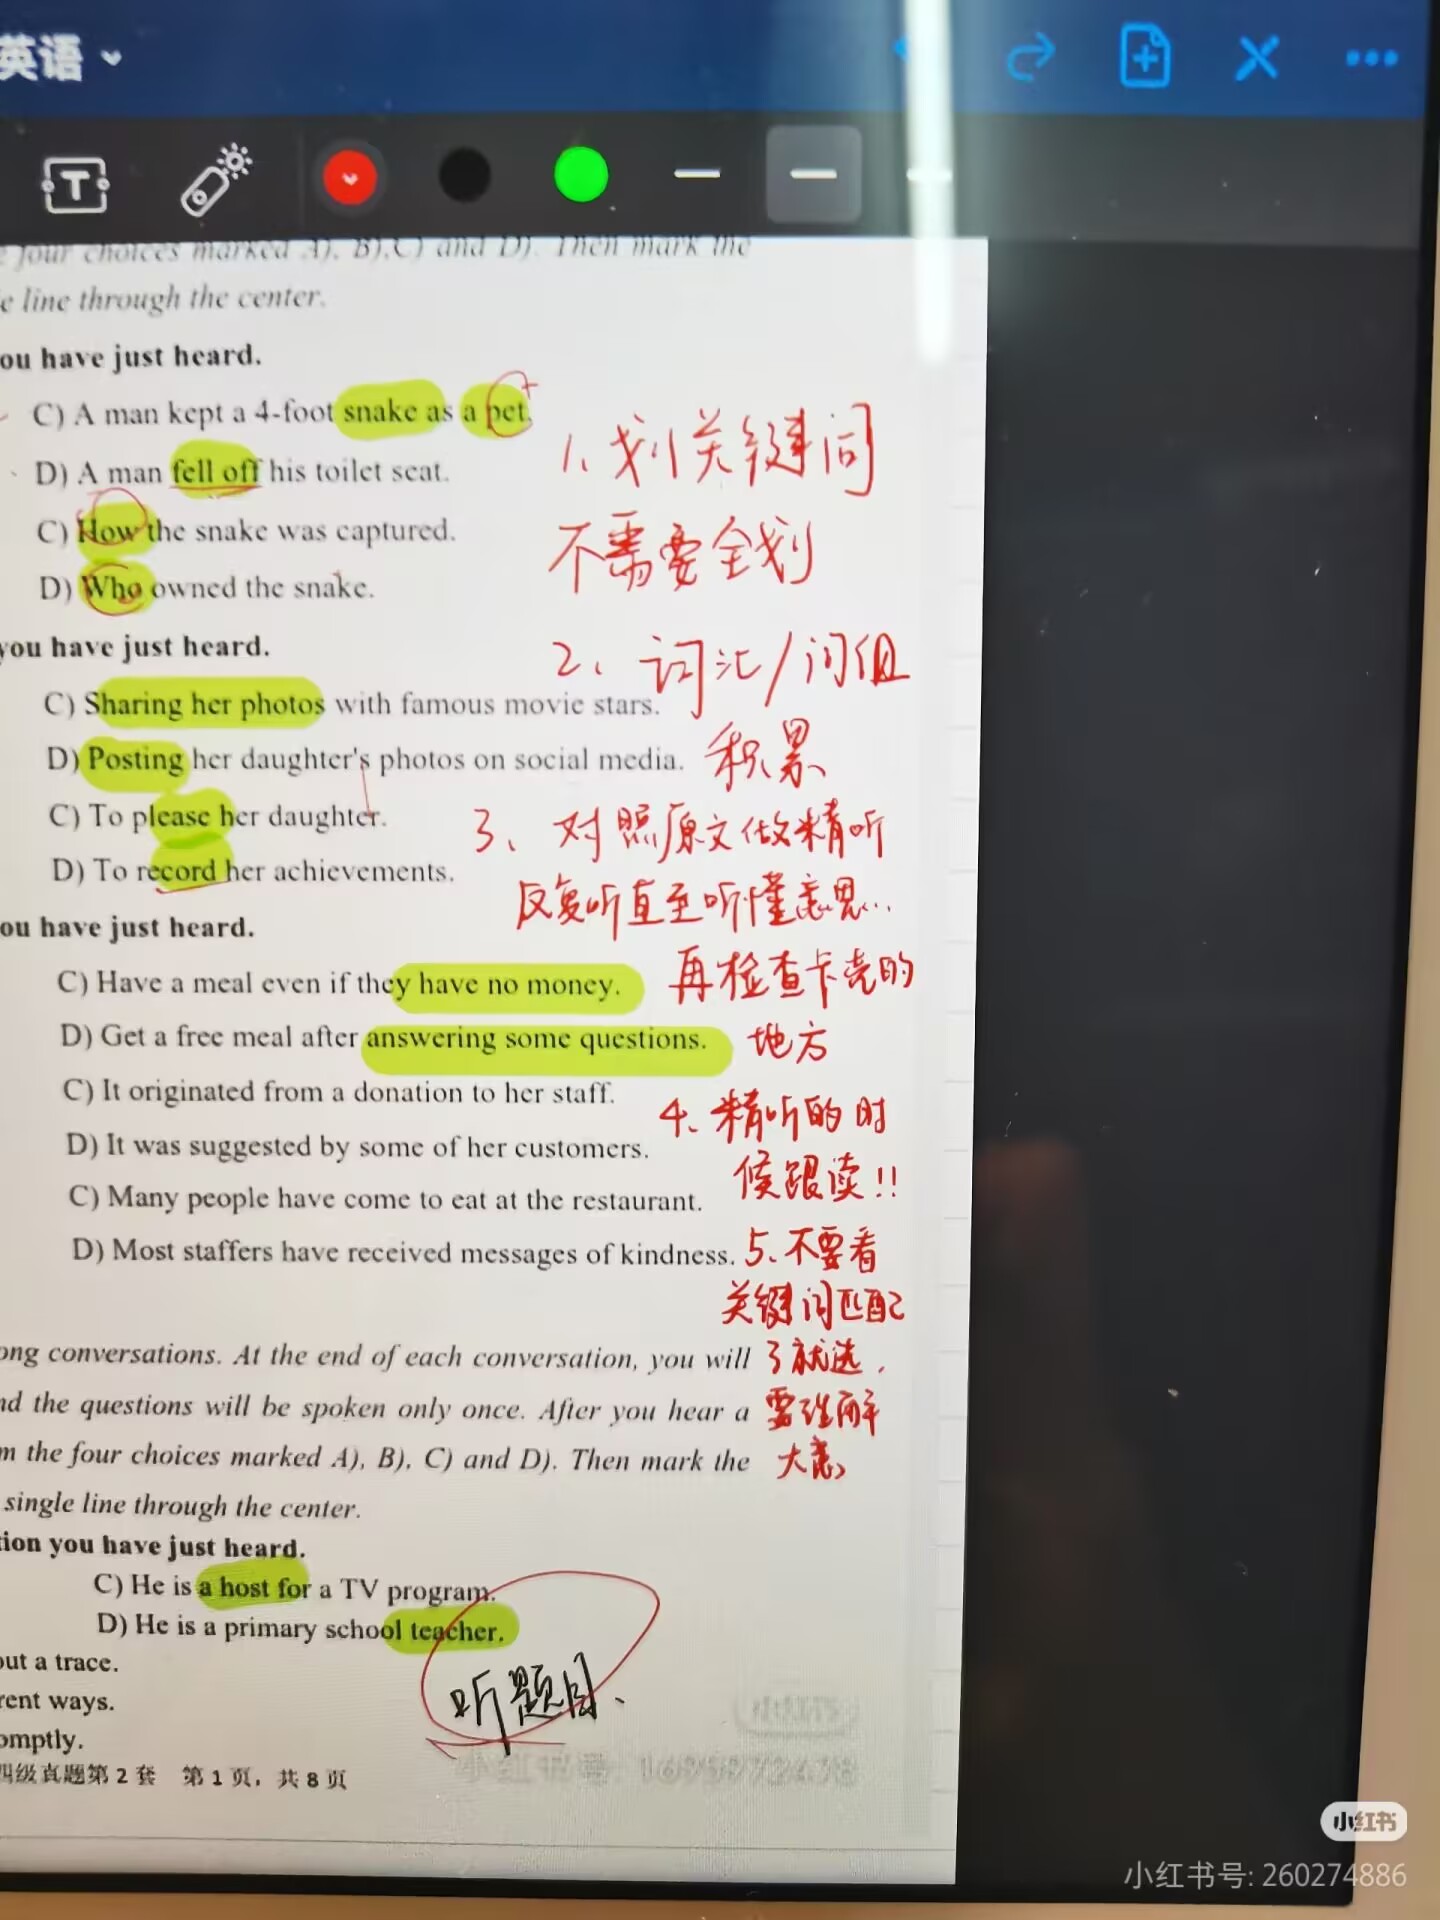 英语
T
four choices marked A), B),C) and D). Then mark the
e line through the center.
ou have just heard.
C) A man kept a 4-foot snake as a pet.
D) A man fell off his toilet seat.
1、划关键词
C) How the snake was captured.
不需要全划
D) Who owned the snake.
you have just heard.
2、词汇/词组
C) Sharing her photos with famous movie stars.
D) Posting her daughter's photos on social media.
积累
C) To please her daughter.
3、对照原文做精听
D) To record her achievements.
反复听直至听懂意思...
ou have just heard.
C) Have a meal even if they have no money.
再检查卡壳的
D) Get a free meal after answering some questions.
地方
C) It originated from a donation to her staff.
4、精听的时
D) It was suggested by some of her customers.
候跟读!!
C) Many people have come to eat at the restaurant.
D) Most staffers have received messages of kindness.
5、不要看
关键词匹配
ong conversations. At the end of each conversation, you will
了就选,
nd the questions will be spoken only once. After you hear a
要理解
m the four choices marked A), B), C) and D). Then mark the
大意
single line through the center.
tion you have just heard.
C) He is a host for a TV program.
D) He is a primary school teacher.
out a trace.
rent ways.
听题目、
omptly.
四级真题第2套 第1页，共8页
小红书
小红书号: 260274886